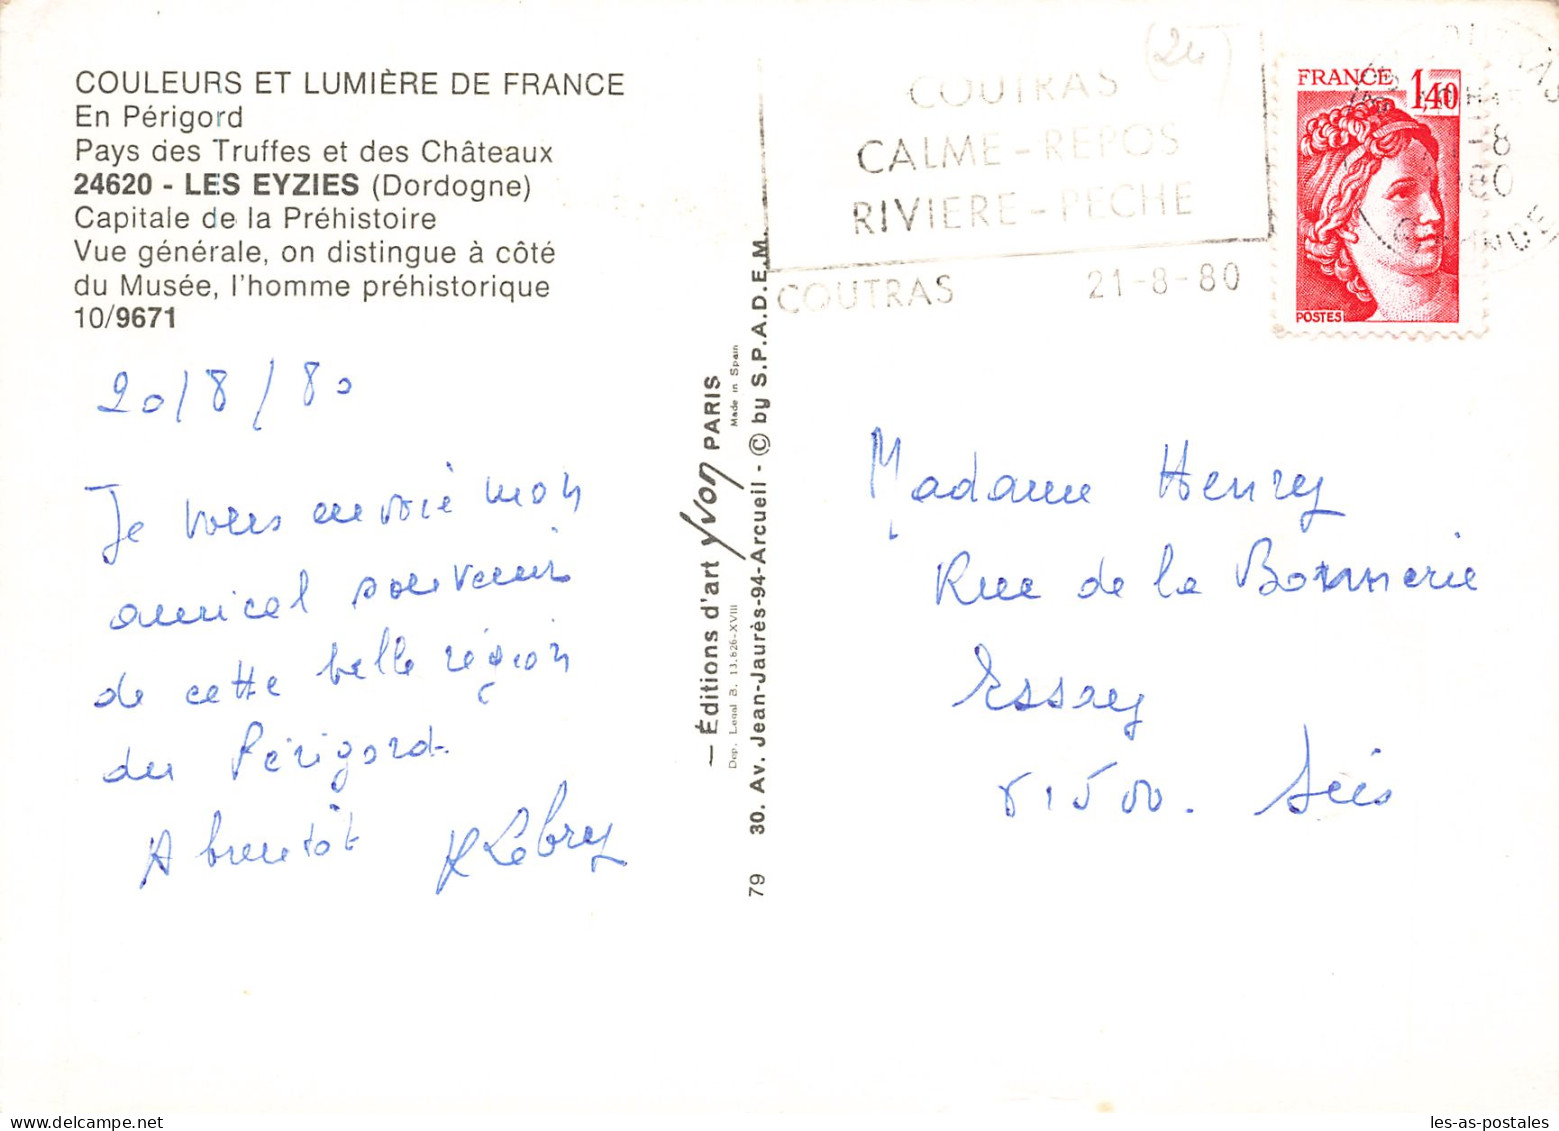 COULEURS ET LUMIÈRE DE FRANCE
En Périgord
Pays des Truffes et des Châteaux
24620 - LES EYZIES (Dordogne)
Capitale de la Préhistoire
Vue générale, on distingue à côté
du Musée, l'homme préhistorique
10/9671
20/8/80
Je vous envoie mon
amical souvenir
de cette belle région
du Périgord
A bientôt
— Éditions d'art Yvon PARIS
Made in Spain
Dep. Legal B. 13.826-XVIII
30. Av. Jean-Jaurès-94-Arcueil - © by S.P.A.D.E.M.
79
(24)
COUTRAS
CALME - REPOS
RIVIERE - PECHE
COUTRAS 21-8-80
FRANCE 1,40
POSTES
-8
80
Madame Henry
Rue de la
Essay
61500. Sées
Delcampe.net
les-as-postales